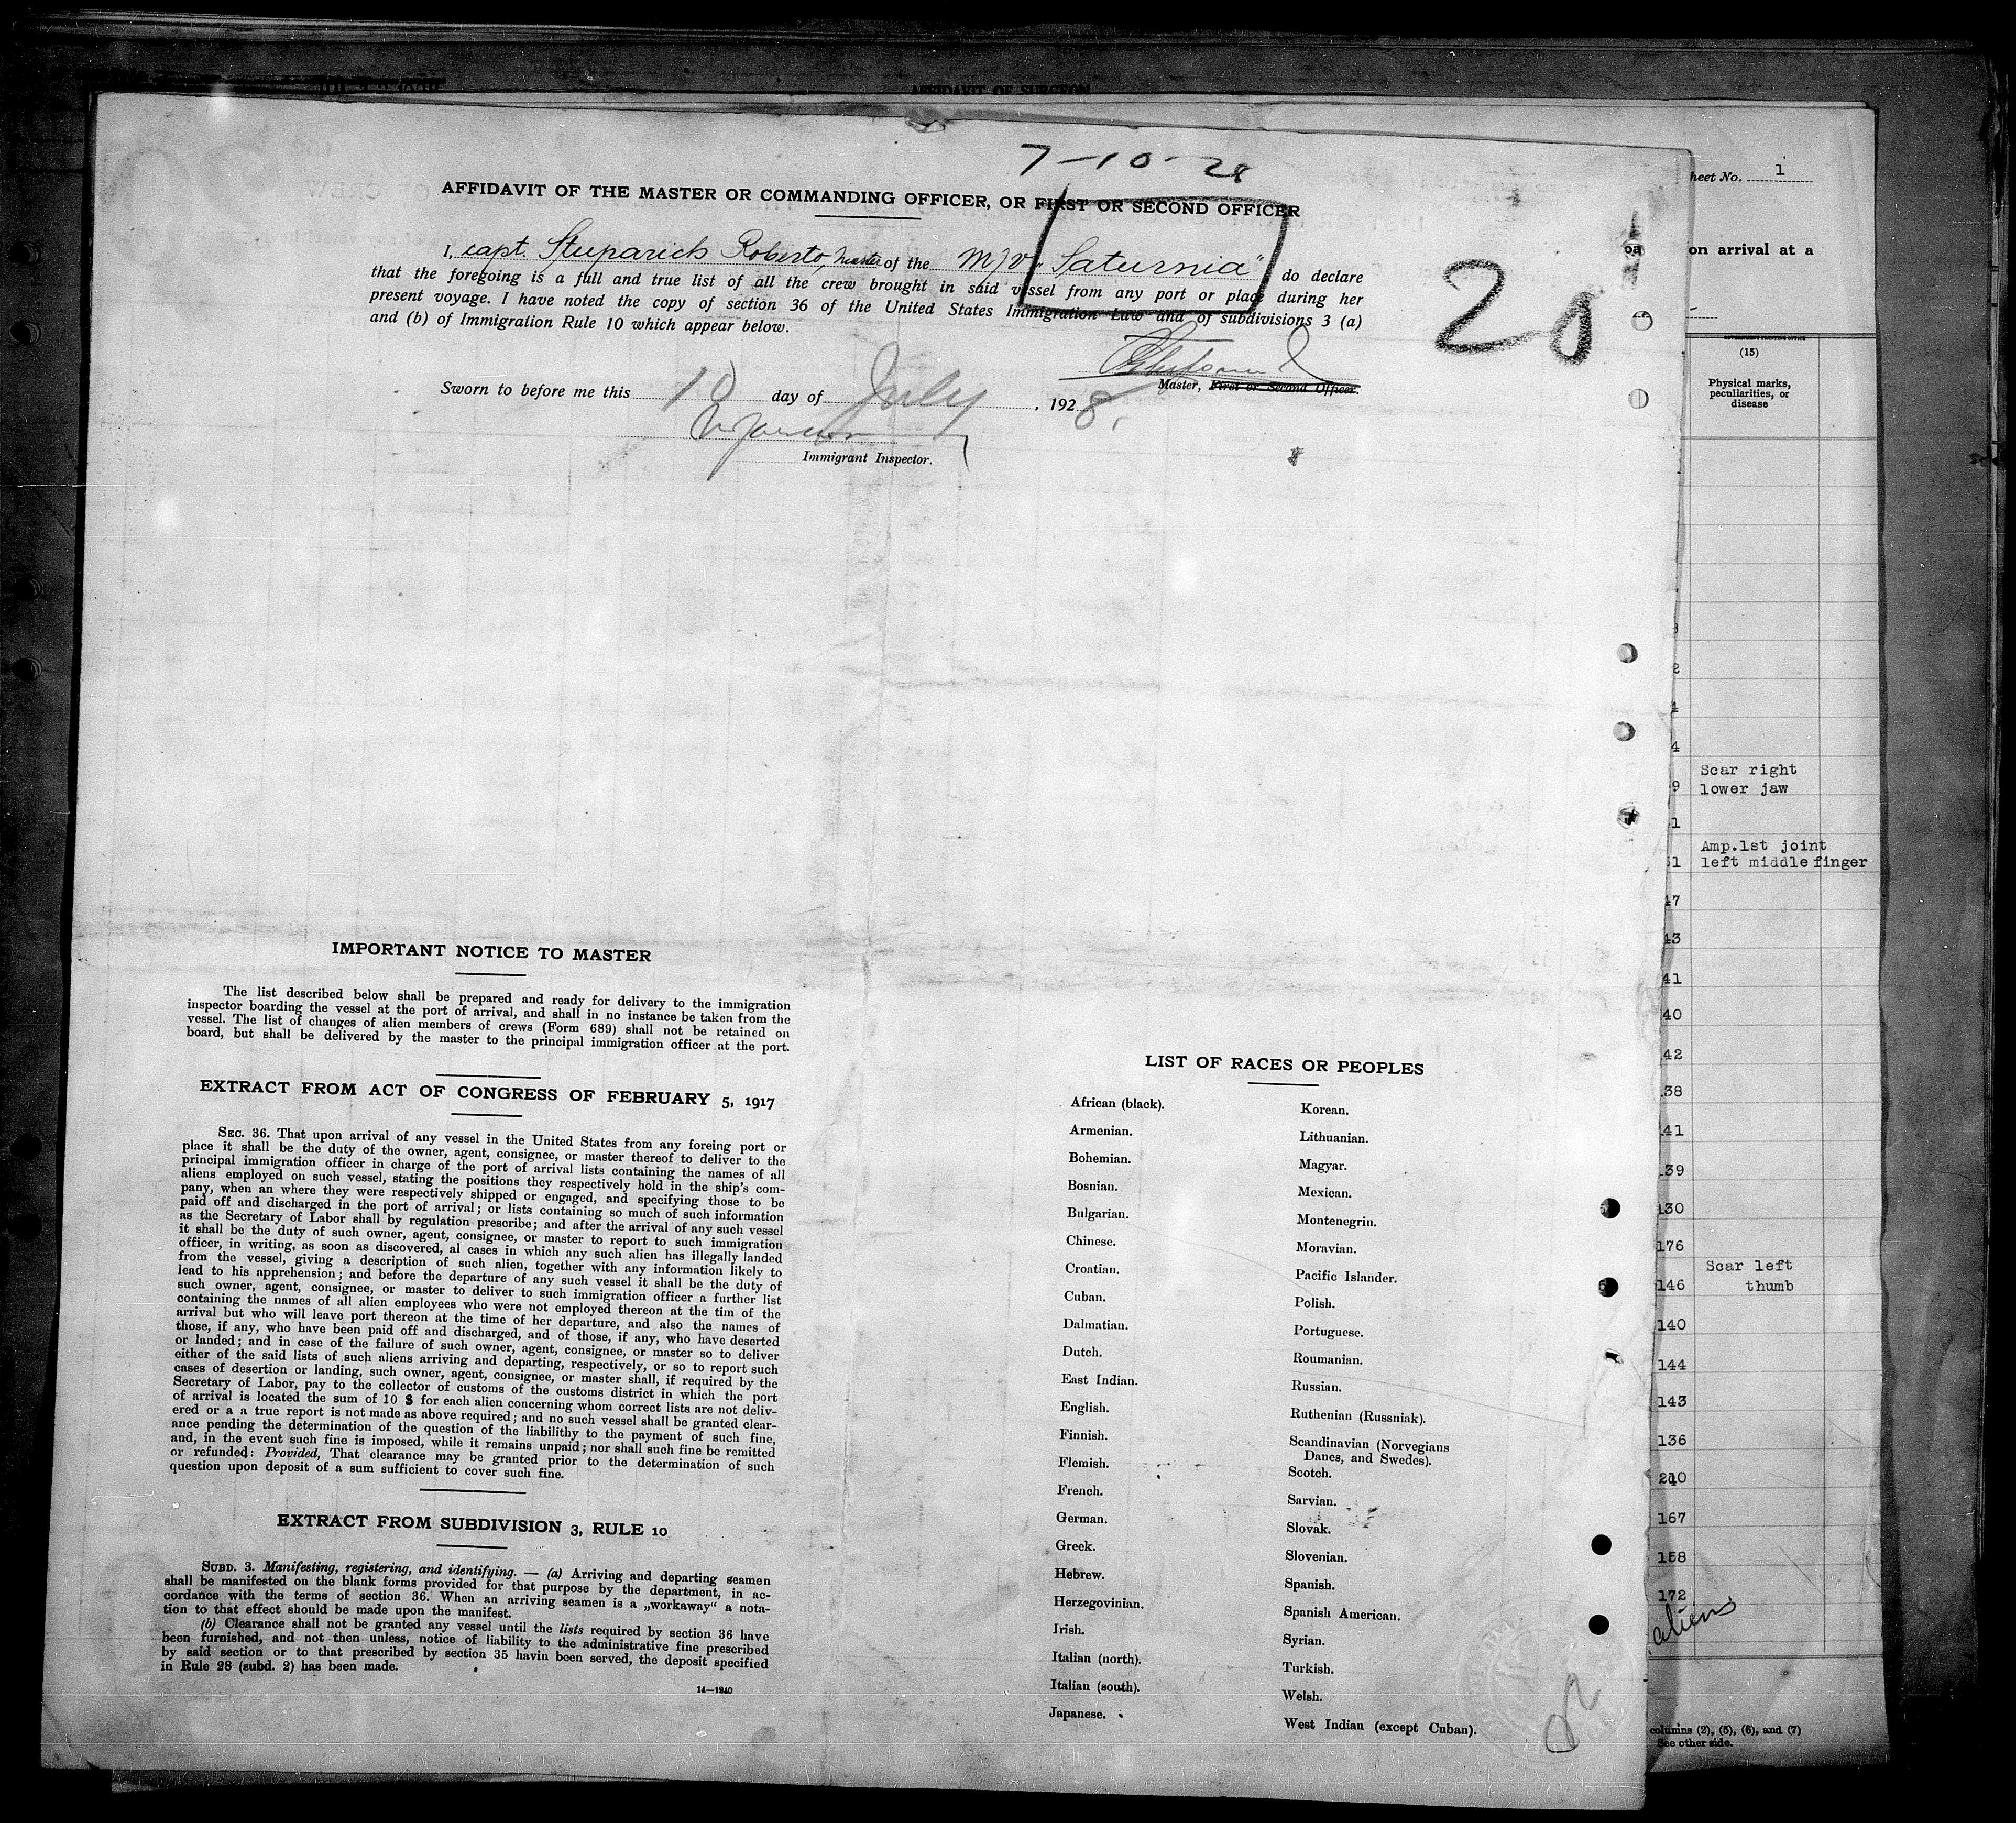 AFFIDAVIT OF SURGEON
7-10-28
AFFIDAVIT OF THE MASTER OR COMMANDING OFFICER, OR FIRST OR SECOND OFFICER
I, capt. Stuparich Roberto, master of the M/V "Saturnia" do declare
that the foregoing is a full and true list of all the crew brought in said vessel from any port or place during her
present voyage. I have noted the copy of section 36 of the United States Immigration Law and of subdivisions 3 (a)
and (b) of Immigration Rule 10 which appear below.
20
Master, First or Second Officer.
Sworn to before me this 10 day of July, 1928.
Immigrant Inspector.
IMPORTANT NOTICE TO MASTER
The list described below shall be prepared and ready for delivery to the immigration
inspector boarding the vessel at the port of arrival, and shall in no instance be taken from the
vessel. The list of changes of alien members of crews (Form 689) shall not be retained on
board, but shall be delivered by the master to the principal immigration officer at the port.
EXTRACT FROM ACT OF CONGRESS OF FEBRUARY 5, 1917
SEC. 36. That upon arrival of any vessel in the United States from any foreing port or
place it shall be the duty of the owner, agent, consignee, or master thereof to deliver to the
principal immigration officer in charge of the port of arrival lists containing the names of all
aliens employed on such vessel, stating the positions they respectively hold in the ship's com-
pany, when an where they were respectively shipped or engaged, and specifying those to be
paid off and discharged in the port of arrival; or lists containing so much of such information
as the Secretary of Labor shall by regulation prescribe; and after the arrival of any such vessel
it shall be the duty of such owner, agent, consignee, or master to report to such immigration
officer, in writing, as soon as discovered, al cases in which any such alien has illegally landed
from the vessel, giving a description of such alien, together with any information likely to
lead to his apprehension; and before the departure of any such vessel it shall be the duty of
such owner, agent, consignee, or master to deliver to such immigration officer a further list
containing the names of all alien employees who were not employed thereon at the tim of the
arrival but who will leave port thereon at the time of her departure, and also the names of
those, if any, who have been paid off and discharged, and of those, if any, who have deserted
or landed; and in case of the failure of such owner, agent, consignee, or master so to deliver
either of the said lists of such aliens arriving and departing, respectively, or so to report such
cases of desertion or landing, such owner, agent, consignee, or master shall, if required by the
Secretary of Labor, pay to the collector of customs of the customs district in which the port
of arrival is located the sum of 10 $ for each alien concerning whom correct lists are not deliv-
ered or a a true report is not made as above required; and no such vessel shall be granted clear-
ance pending the determination of the question of the liabilithy to the payment of such fine,
and, in the event such fine is imposed, while it remains unpaid; nor shall such fine be remitted
or refunded: Provided, That clearance may be granted prior to the determination of such
question upon deposit of a sum sufficient to cover such fine.
EXTRACT FROM SUBDIVISION 3, RULE 10
SUBD. 3. Manifesting, registering, and identifying. — (a) Arriving and departing seamen
shall be manifested on the blank forms provided for that purpose by the department, in ac-
cordance with the terms of section 36. When an arriving seamen is a „workaway“ a nota-
tion to that effect should be made upon the manifest.
(b) Clearance shall not be granted any vessel until the lists required by section 36 have
been furnished, and not then unless, notice of liability to the administrative fine prescribed
by said section or to that prescribed by section 35 havin been served, the deposit specified
in Rule 28 (subd. 2) has been made.
14—1240
LIST OF RACES OR PEOPLES
African (black).
Armenian.
Bohemian.
Bosnian.
Bulgarian.
Chinese.
Croatian.
Cuban.
Dalmatian.
Dutch.
East Indian.
English.
Finnish.
Flemish.
French.
German.
Greek.
Hebrew.
Herzegovinian.
Irish.
Italian (north).
Italian (south).
Japanese.
Korean.
Lithuanian.
Magyar.
Mexican.
Montenegrin.
Moravian.
Pacific Islander.
Polish.
Portuguese.
Roumanian.
Russian.
Ruthenian (Russniak).
Scandinavian (Norvegians
Danes, and Swedes).
Scotch.
Sarvian.
Slovak.
Slovenian.
Spanish.
Spanish American.
Syrian.
Turkish.
Welsh.
West Indian (except Cuban).
heet No. 1
on arrival at a
(15)
Physical marks,
peculiarities, or
disease
Scar right
9 lower jaw
Amp.1st joint
left middle finger
47
43
41
40
42
38
41
39
130
176
Scar left
146 thumb
140
144
143
136
167
158
172
aliens
columns (2), (5), (6), and (7)
See other side.